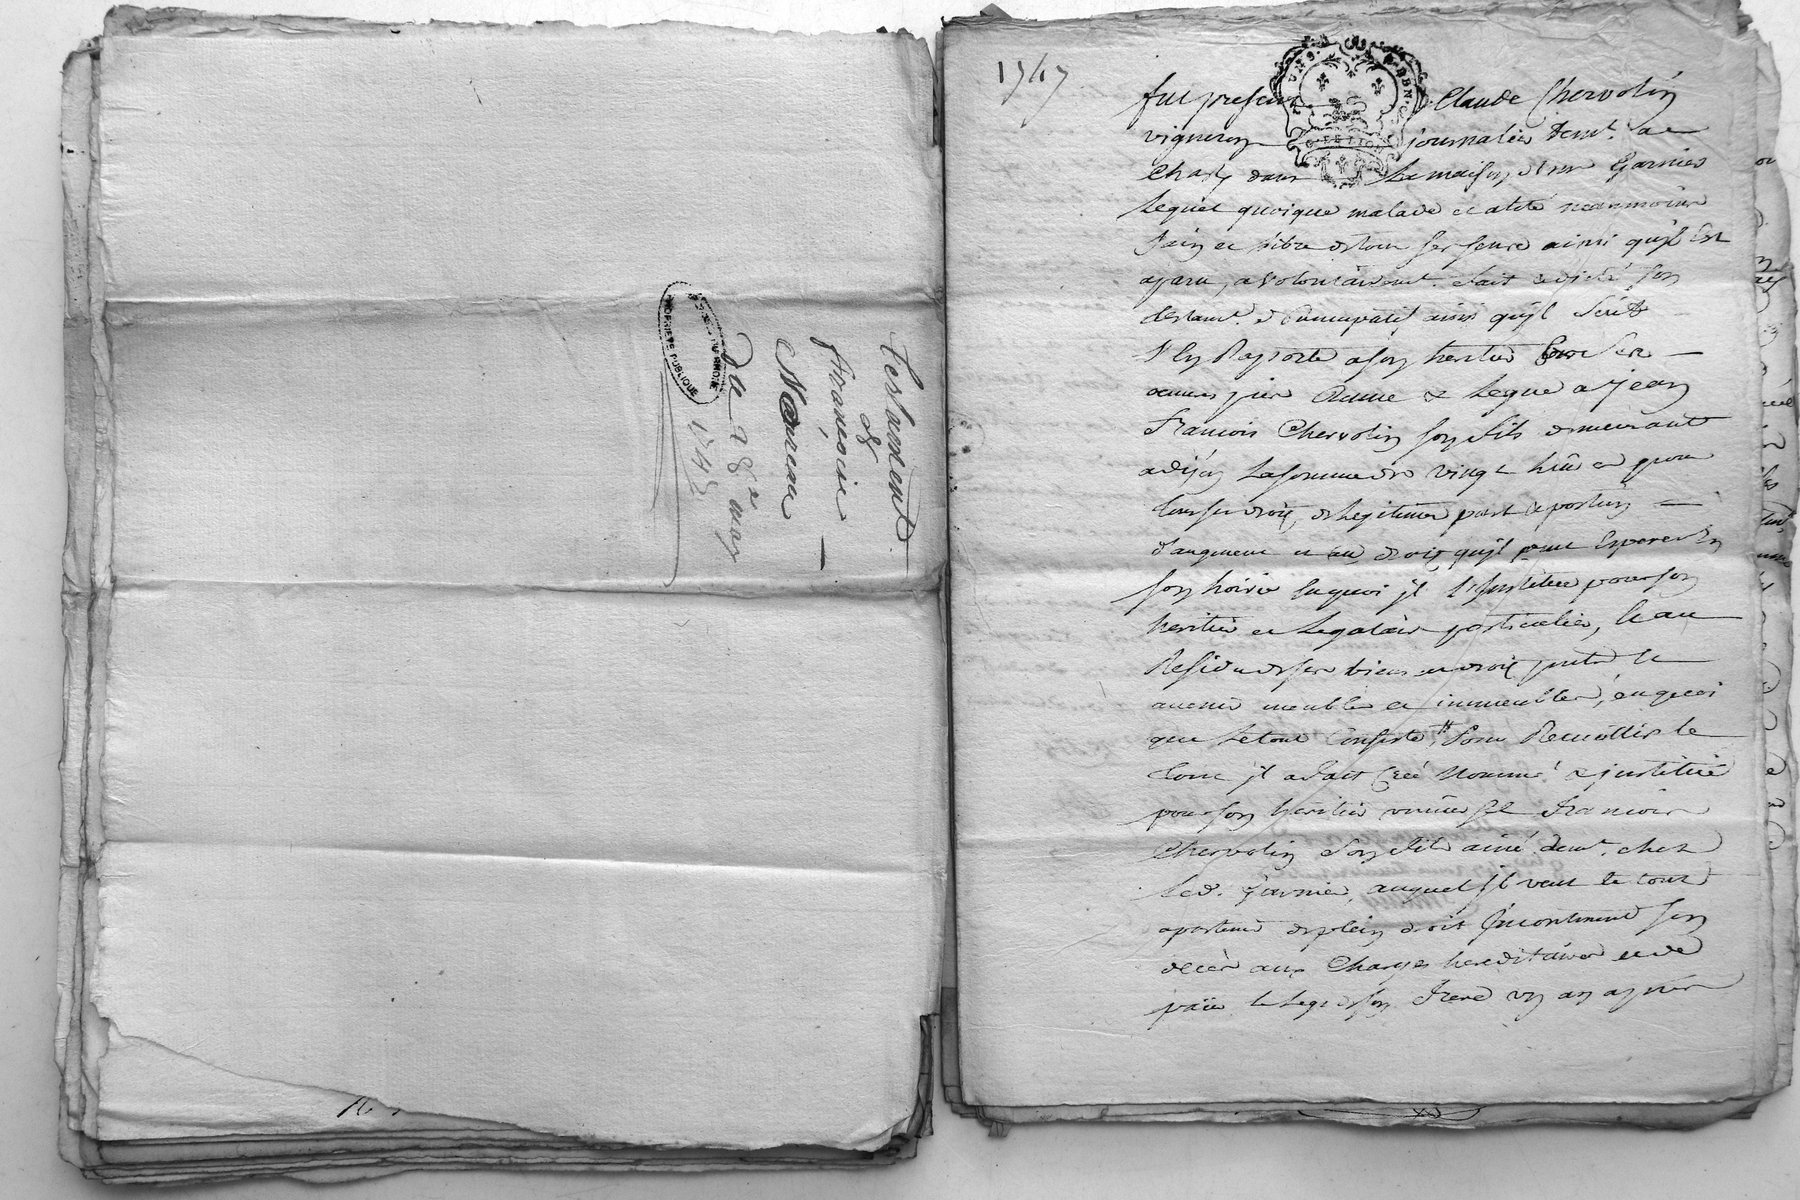 Testament
de
françoise
Moireau
Du 28e may
174
PROPRIÉTÉ PUBLIQUE
DU RHONE
1747
fut present Claude Chervolin
vigneron journalier demt. a
Charly dans la maison Garnier
Lequel quoique malade et alité neanmoins
sain et libre de tous ses sens ainsi qu'jl Est
aparu, a volontairemt. fait et dicté son
testamt. nuncupatif ainsi qu'jl suit
s'en Raporte a son heritier
Legue a jean
francois Chervolin son fils demeurant
a dijon La somme de vingt huit pour
tous ses droit, de Legitime part et portion
d'augment et au droit qu'jl peut Esperer En
son hoirie Enquoi jl L'Institue pour son
heritier et Legataire particulier, Et au
Residu de ses biens et droit present et
avenir meuble et immeuble, en quoi
que Le tout Consiste, Pour Recuillir le
tout jl a fait Créé Nommé et justitué
pour son heritier universel francois
Chervolin son fils ainé demt. chez
Led. garnier, auquel jl veut le tout
apartenir de plein droit Jncontinent son
decès aux Charges hereditaires et de
paier le Legs de son frere un an après